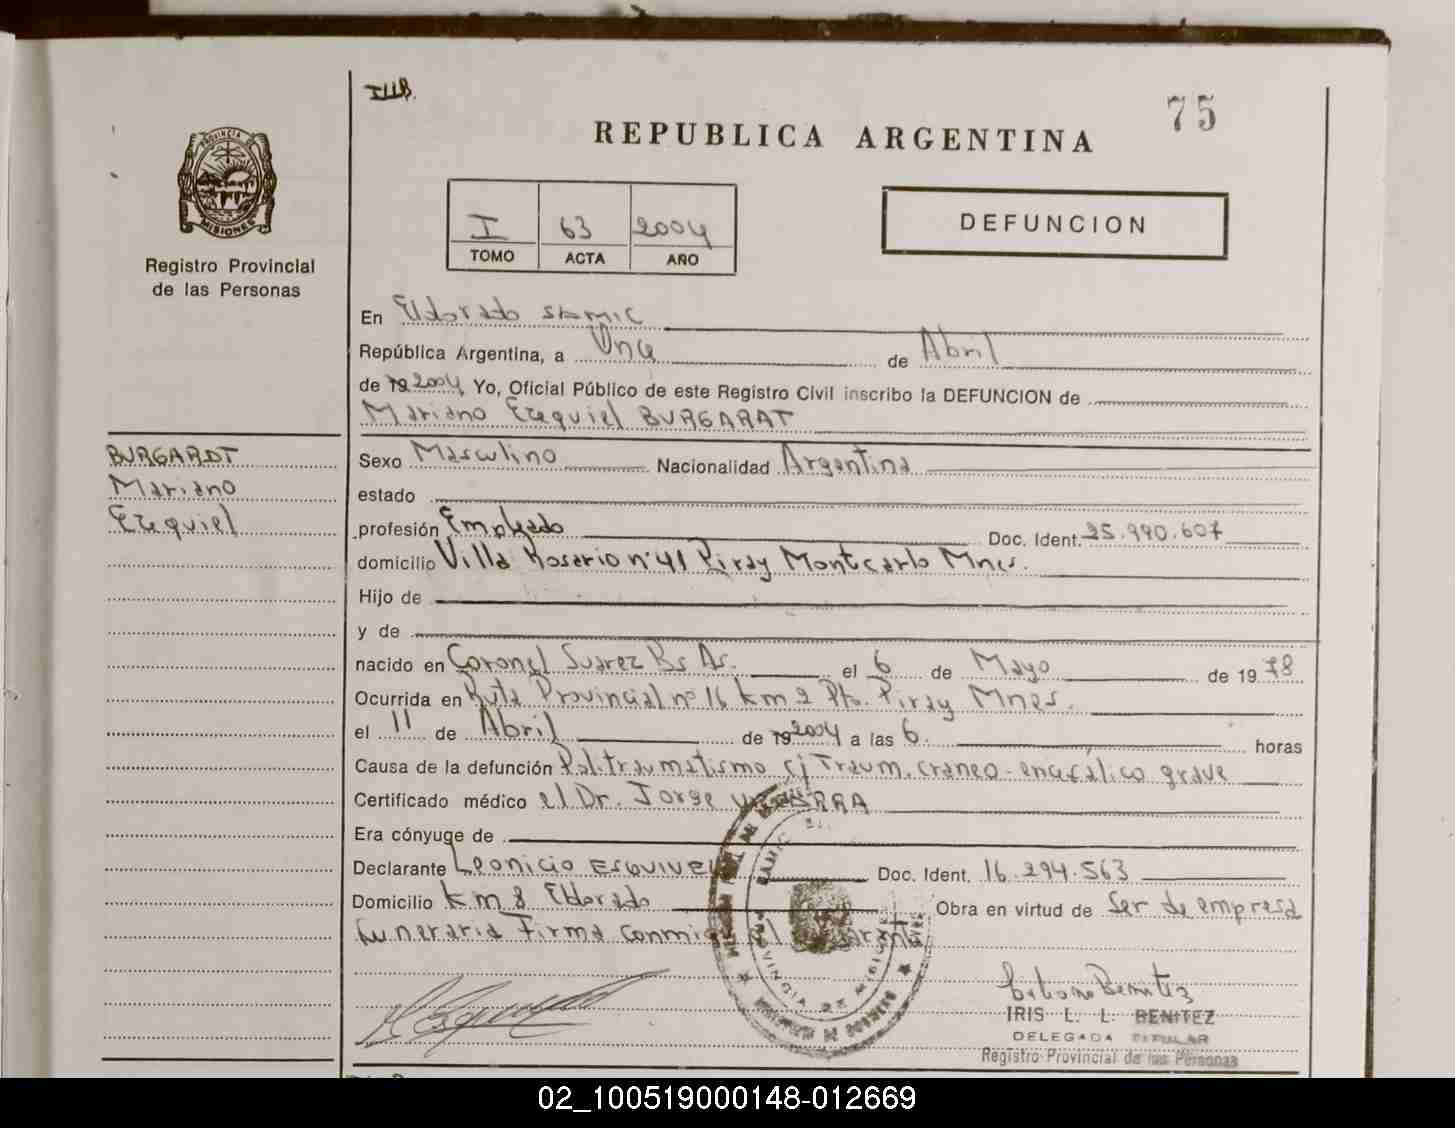 75
REPUBLICA ARGENTINA
PROVINCIA DE
MISIONES
Registro Provincial
de las Personas
I 63 2004
TOMO ACTA AÑO
DEFUNCION
En Eldorado
República Argentina, a Once de Abril
de 19 2004 Yo, Oficial Público de este Registro Civil inscribo la DEFUNCION de
Mariano Ezequiel BURGARAT
BURGARDT
Mariano
Ezequiel
Sexo Masculino Nacionalidad Argentina
estado
profesión Empleado Doc. Ident. 25.990.607
domicilio Villa Rosario n° 41 Piray Montcarlo Mnes.
Hijo de
y de
nacido en Coronel Suarez Bs As. el 6 de Mayo de 1978
Ocurrida en Ruta Provincial n° 16 km 2 Pto. Piray Mnes.
el 11 de Abril de 19 2004 a las 6. horas
Causa de la defunción Politraumatismo c/ Traum. craneo-encefalico grave
Certificado médico el Dr. Jorge
Era cónyuge de
Declarante Leonicio ESQUIVEL Doc. Ident. 16.294.563
Domicilio km 8 Eldorado Obra en virtud de Ser de empresa
funeraria Firma conmigo el
IRIS L. L. BENITEZ
DELEGADA TITULAR
Registro Provincial de las Personas
02_100519000148-012669